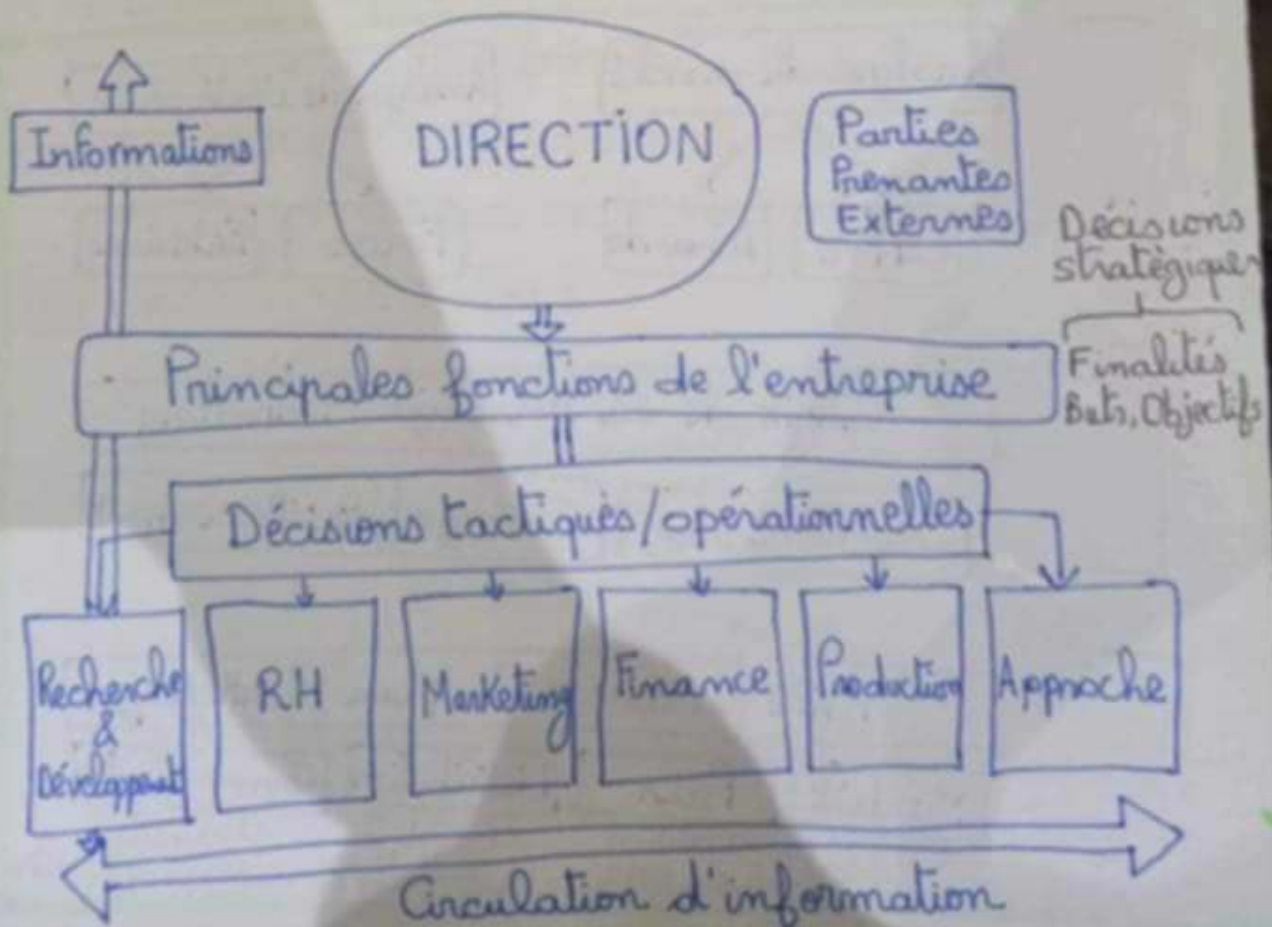 Informations
DIRECTION
Parties
Prenantes
Externes
Décisions
stratégiques
Principales fonctions de l'entreprise
Finalités
Buts, Objectifs
Décisions tactiques/opérationnelles
Recherche
&
Développment
RH
Marketing
Finance
Production
Approche
Circulation d'information